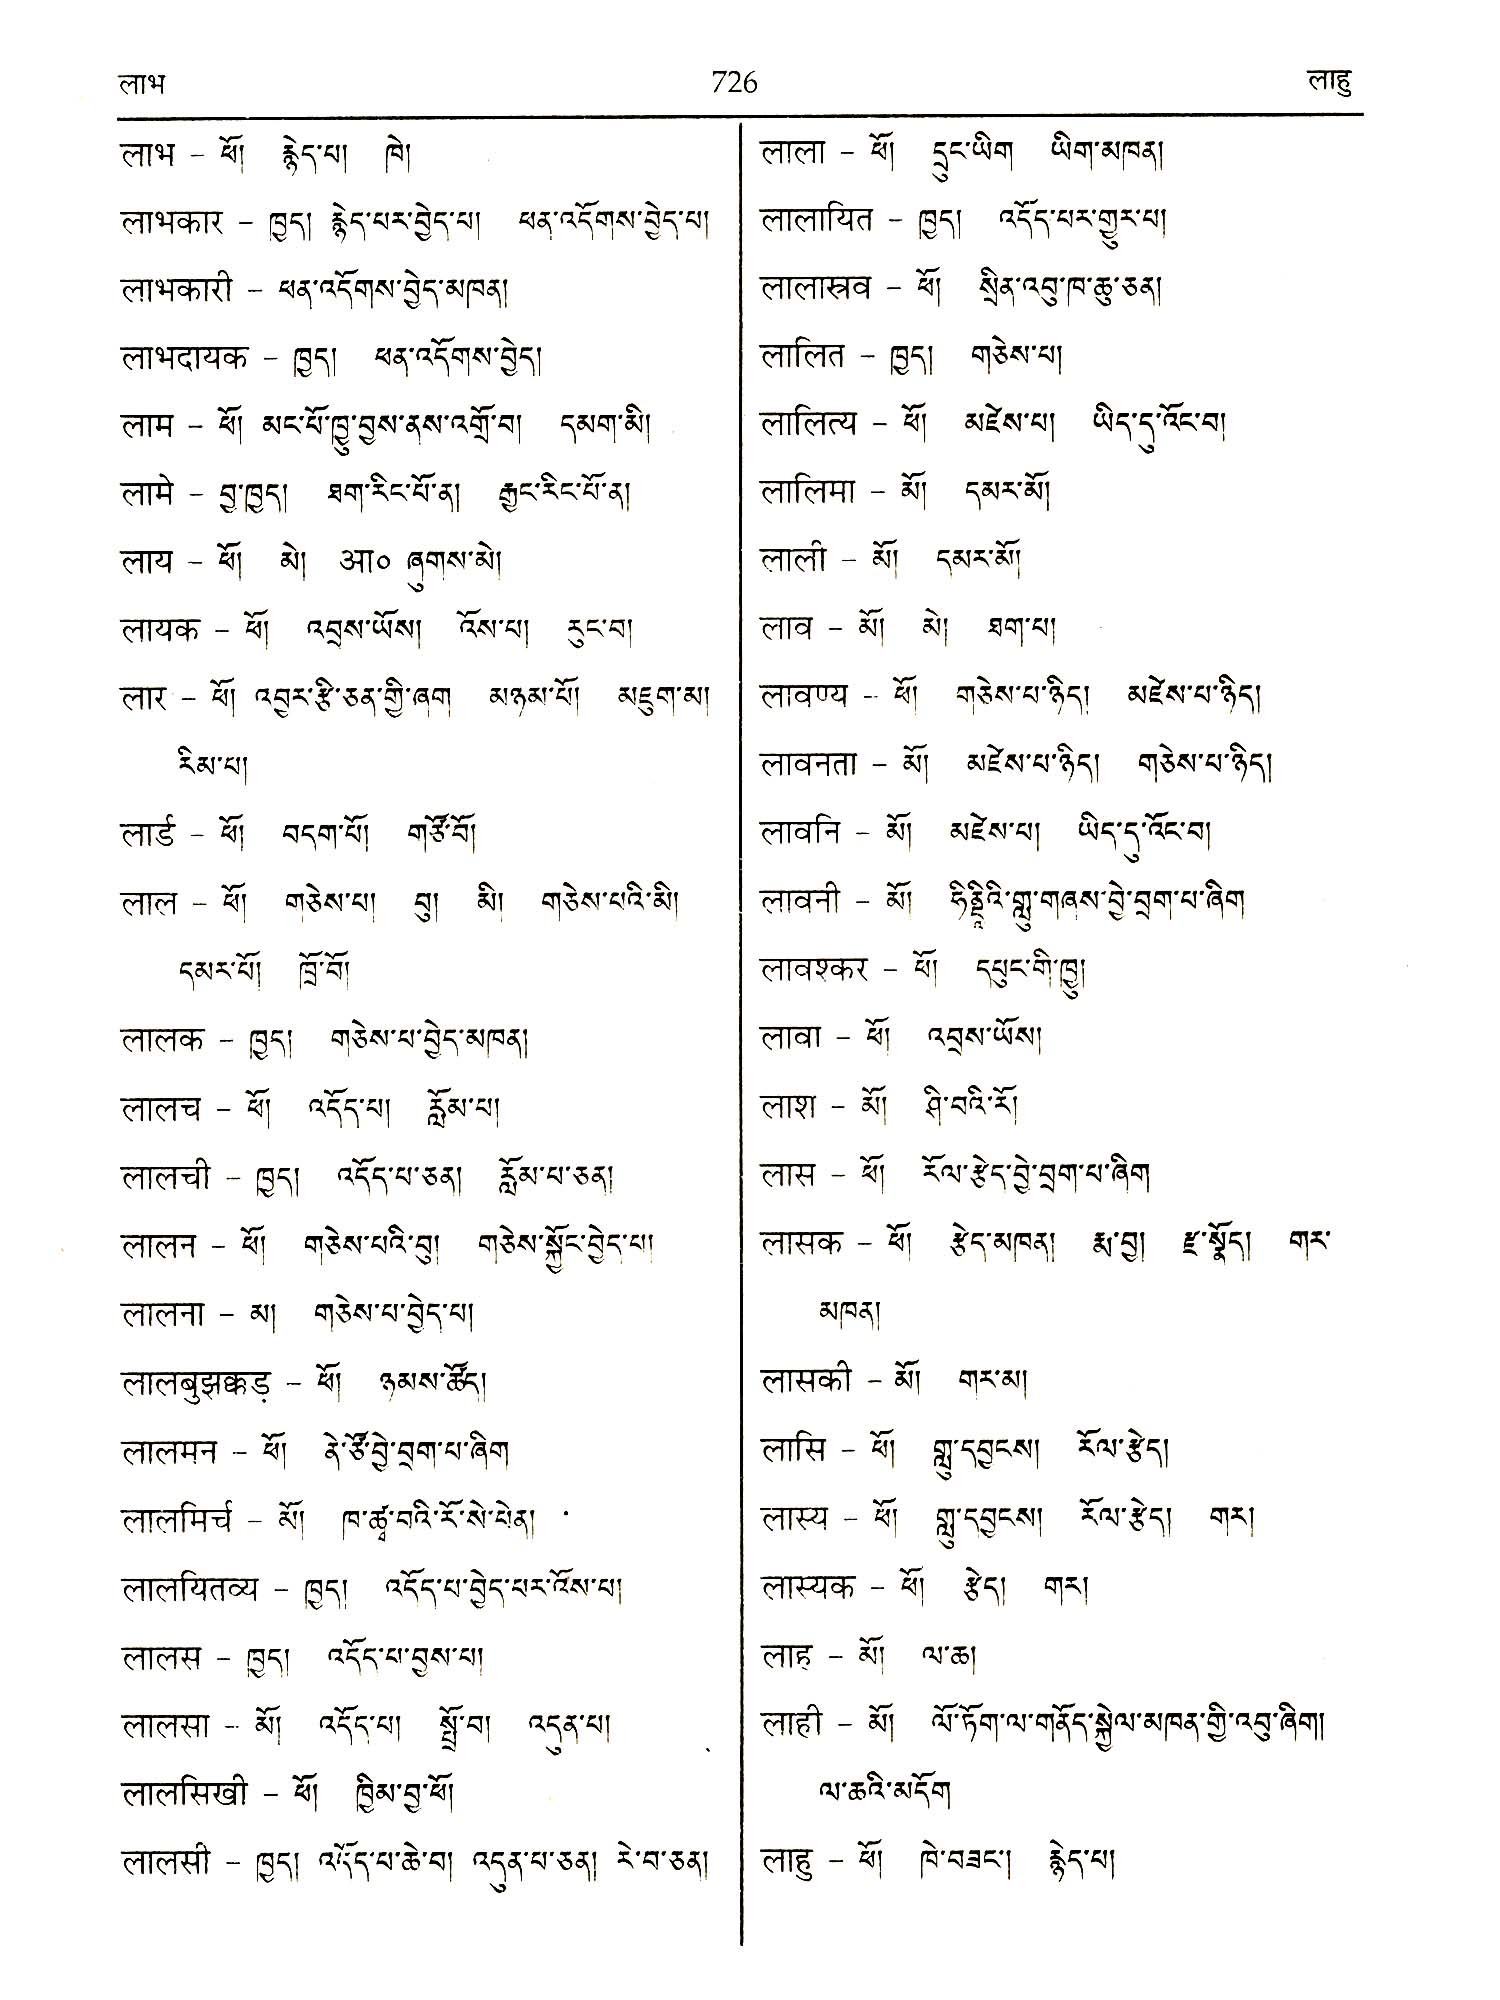 लाभ 726 लाहु
लाभ - ཕོ། རྙེད་པ། ཁེ།
लाभकार - ཁྱད། རྙེད་པར་བྱེད་པ། ཕན་འདོགས་བྱེད་པ།
लाभकारी - ཕན་འདོགས་བྱེད་མཁན།
लाभदायक - ཁྱད། ཕན་འདོགས་བྱེད།
लाम - ཕོ། མང་པོ་ཁྱུ་བྱས་ནས་འགྲོ་བ། དམག་མི།
लामे - བྱ་ཁྱད། ཐག་རིང་པོ་ན། རྒྱང་རིང་པོ་ན།
लाय - ཕོ། མེ། आ० ཞུགས་མེ།
लायक - ཕོ། འབྲས་ཡོས། འོས་པ། རུང་བ།
लार - ཕོ། འབྱར་རྩི་ཅན་གྱི་ཞག མཉམ་པོ། མཇུག་མ།
རིམ་པ།
लार्ड - ཕོ། བདག་པོ། གཙོ་བོ།
लाल - ཕོ། གཅེས་པ། བུ། མི། གཅེས་པའི་མི།
དམར་པོ། ཁྲོ་བོ།
लालक - ཁྱད། གཅེས་པ་བྱེད་མཁན།
लालच - ཕོ། འདོད་པ། རློམ་པ།
लालची - ཁྱད། འདོད་པ་ཅན། རློམ་པ་ཅན།
लालन - ཕོ། གཅེས་པའི་བུ། གཅེས་སྐྱོང་བྱེད་པ།
लालना - མ། གཅེས་པ་བྱེད་པ།
लालबुझक्कड़ - ཕོ། ཉམས་ཚོད།
लालमन - ཕོ། ནེ་ཙོ་བྱེ་བྲག་པ་ཞིག
लालमिर्च - མོ། ཁ་ཚྭ་བའི་རོ་སེ་པེན།
लालयितव्य - ཁྱད། འདོད་པ་བྱེད་པར་འོས་པ།
लालस - ཁྱད། འདོད་པ་བྱས་པ།
लालसा - མོ། འདོད་པ། སྤྲོ་བ། འདུན་པ།
लालसिखी - ཕོ། ཁྱིམ་བྱ་ཕོ།
लालसी - ཁྱད། འདོད་པ་ཆེ་བ། འདུན་པ་ཅན། རེ་བ་ཅན།
लाला - ཕོ། དྲུང་ཡིག ཡིག་མཁན།
लालायित - ཁྱད། འདོད་པར་གྱུར་པ།
लालास्रव - ཕོ། སྲིན་འབུ་ཁ་ཆུ་ཅན།
लालित - ཁྱད། གཅེས་པ།
लालित्य - ཕོ། མཛེས་པ། ཡིད་དུ་འོང་བ།
लालिमा - མོ། དམར་མོ།
लाली - མོ། དམར་མོ།
लाव - མོ། མེ། ཐག་པ།
लावण्य - ཕོ། གཅེས་པ་ཉིད། མཛེས་པ་ཉིད།
लावनता - མོ། མཛེས་པ་ཉིད། གཅེས་པ་ཉིད།
लावनि - མོ། མཛེས་པ། ཡིད་དུ་འོང་བ།
लावनी - མོ། ཧིནྡཱིའི་གླུ་གཞས་བྱེ་བྲག་པ་ཞིག
लावश्कर - ཕོ། དཔུང་གི་ཁྱུ།
लावा - ཕོ། འབྲས་ཡོས།
लाश - མོ། ཤི་བའི་རོ།
लास - ཕོ། རོལ་རྩེད་བྱེ་བྲག་པ་ཞིག
लासक - ཕོ། རྩེད་མཁན། རྨ་བྱ། ཇ་སྣོད། གར་
མཁན།
लासकी - མོ། གར་མ།
लासि - ཕོ། གླུ་དབྱངས། རོལ་རྩེད།
लास्य - ཕོ། གླུ་དབྱངས། རོལ་རྩེད། གར།
लास्यक - ཕོ། རྩེད། གར།
लाह - མོ། ལ་ཆ།
लाही - མོ། ལོ་ཏོག་ལ་གནོད་སྐྱེལ་མཁན་གྱི་འབུ་ཞིག།
ལ་ཆའི་མདོག
लाहु - ཕོ། ཁེ་བཟང་། རྙེད་པ།